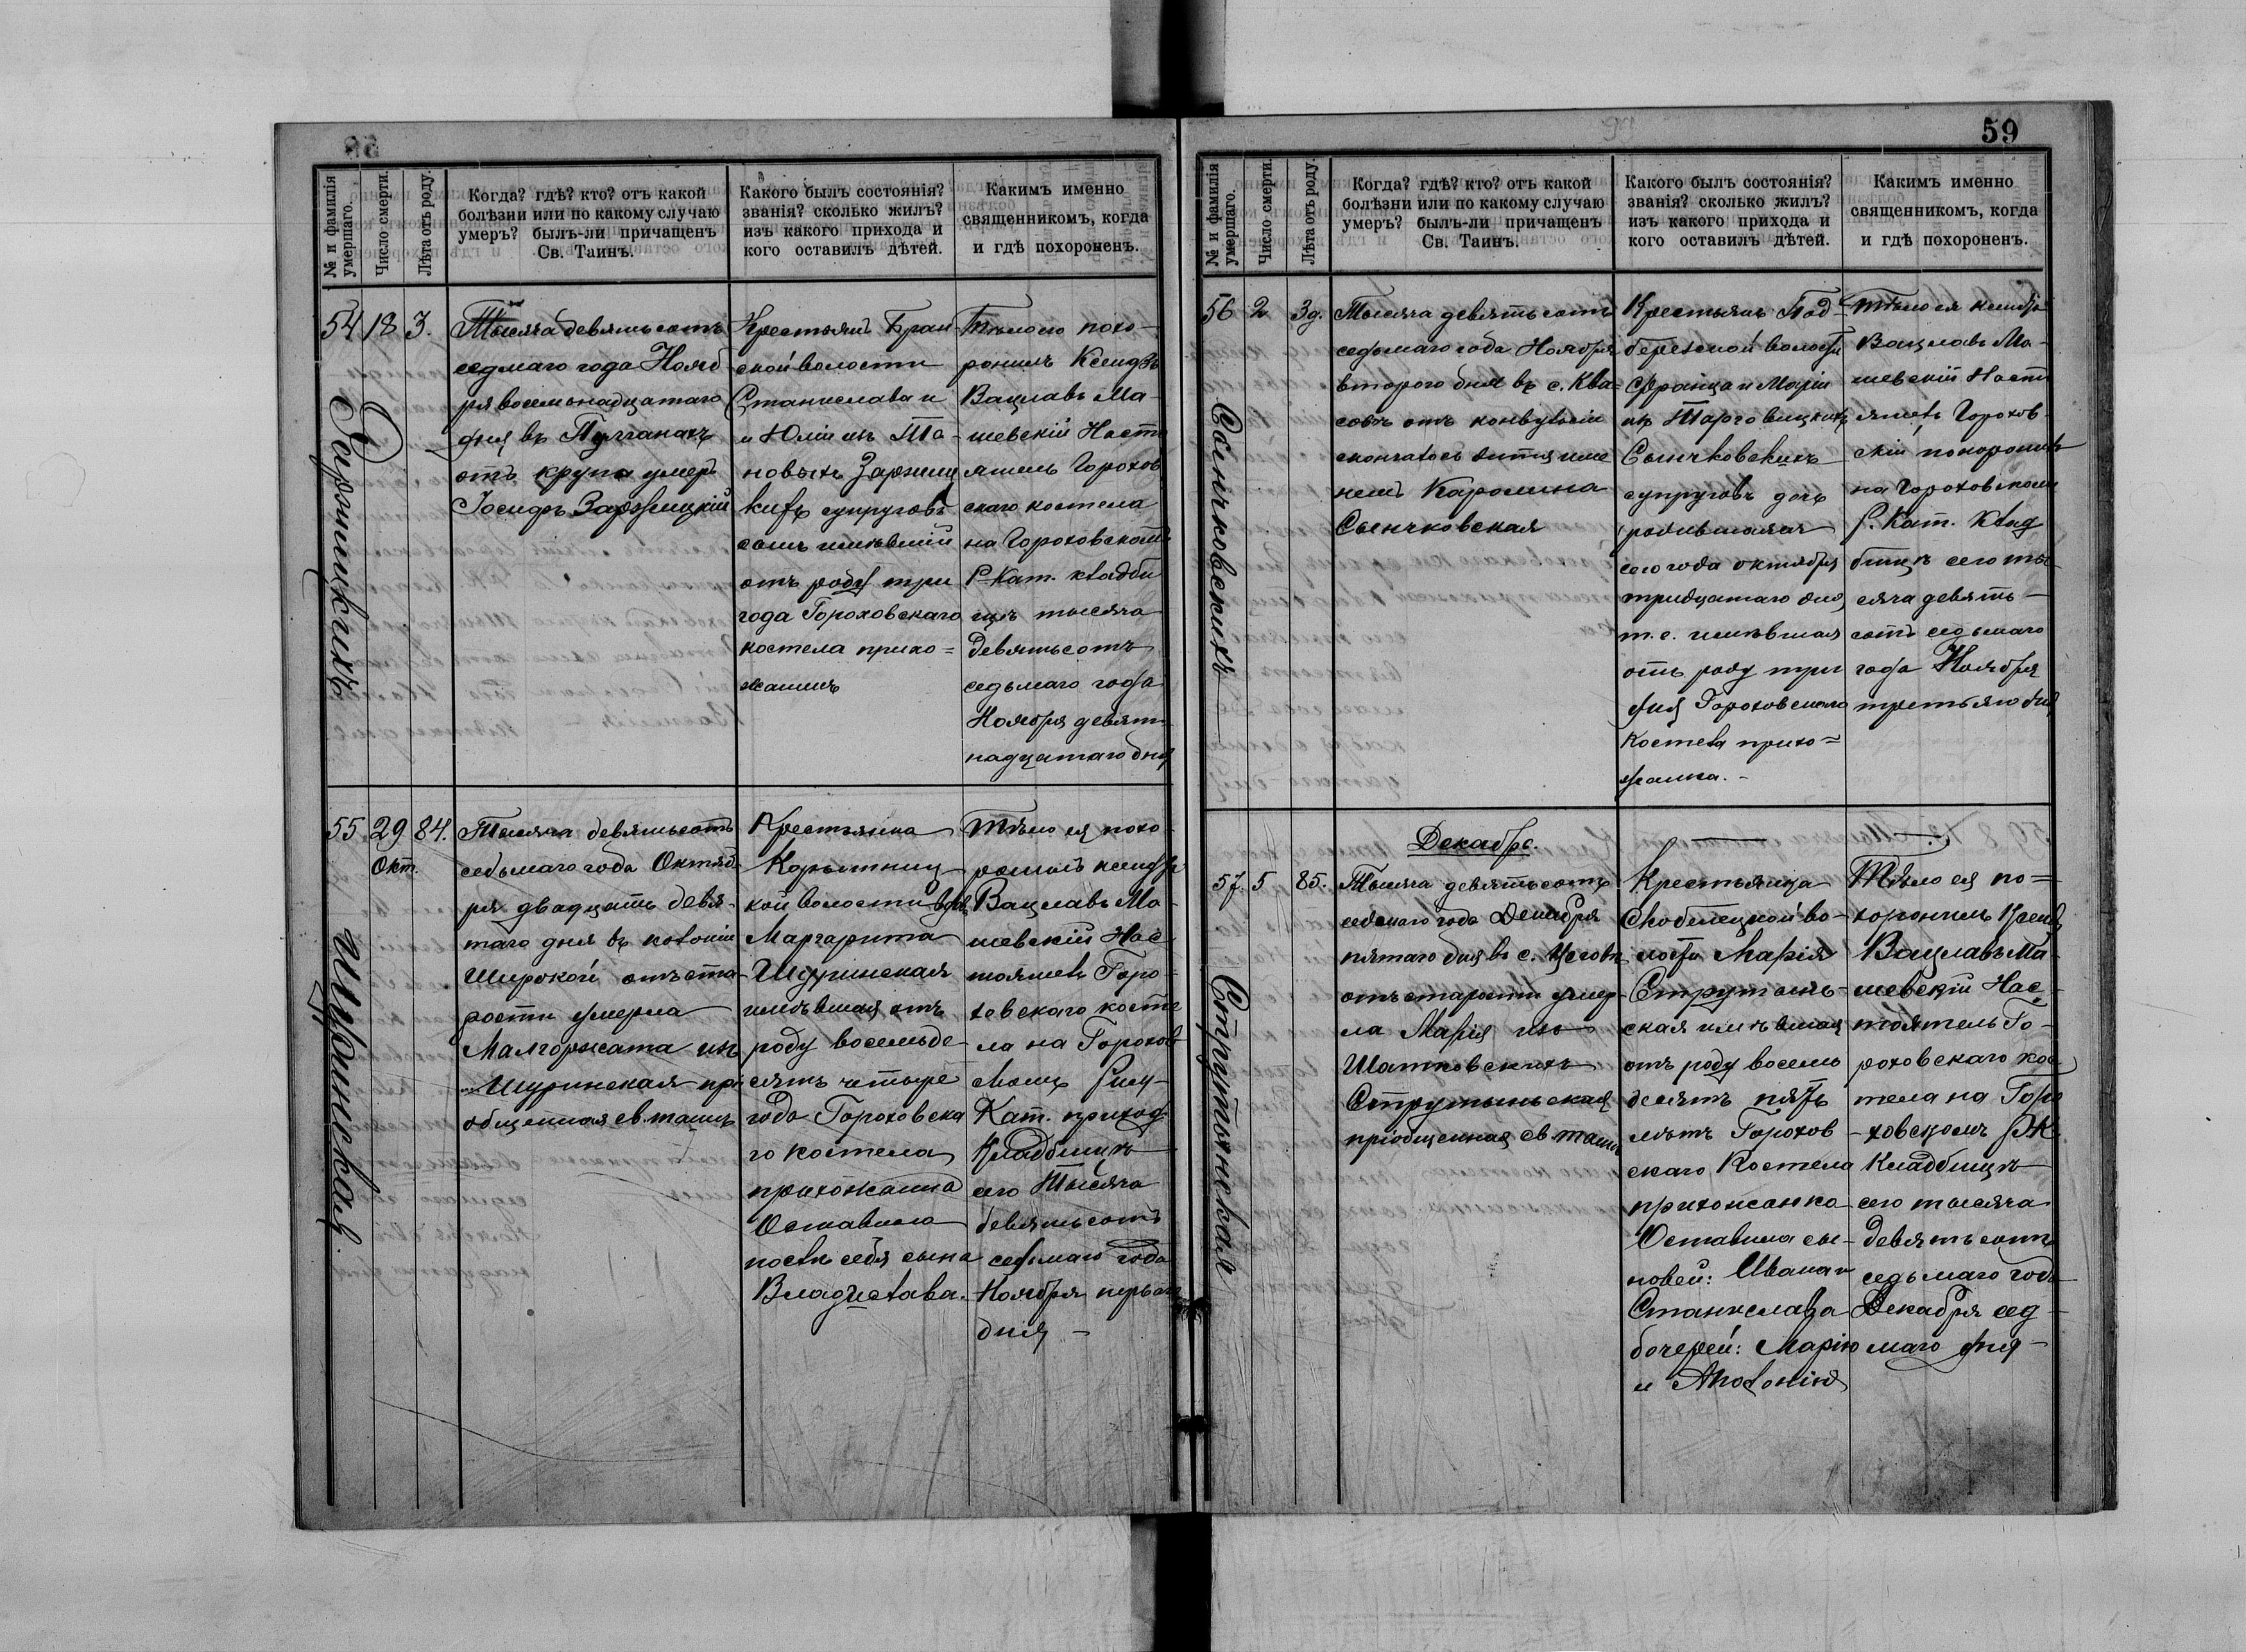 59
№ и фамилія умершаго.
Число смерти.
Лѣта отъ роду.
Когда? гдѣ? кто? отъ какой
болѣзни или по какому случаю
умеръ? былъ-ли причащенъ
Св. Таинъ.
Какого былъ состоянія?
званія? сколько жилъ?
изъ какого прихода и
кого оставилъ дѣтей.
Какимъ именно
священникомъ, когда
и гдѣ похороненъ.
54
18
3.
Тысяча девятьсотъ
седмаго года Нояб
ря восемьнадцатаго
дня въ Пулганахъ
отъ крупа умеръ
Іосифъ Заржицкій
Крестьянъ Бран
ской волости
Станислава и
и Юліи изъ
новыхъ
кихъ супруговъ
сынъ имѣвшій
отъ роду три
года Гороховскаго
костела прихо=
жанинъ
Тѣло его похо-
ронилъ Ксендзъ
Вацлавъ Ма-
шевскій Насто
ятель Горохов
скаго костела
на Гороховскомъ
Р. Кат. кладби
щѣ тысяча
девятьсотъ
седьмаго года
Ноября девят
надцатаго дня
55
29
Окт.
84.
Шуринская
Тысяча девятьсотъ
седьмаго года Октяб-
ря двадцать девя-
таго дня въ колоніи
Широкой отъ ста-
рости умерла
Малгоржата изъ
Шуринская прі
общенная св. таинъ
Крестьянка
Корытниц
кой волости вдова
Маргарита
Шуринская
имѣвшая отъ
роду восемьде-
сятъ четыре
года Гороховска
го костела
прихожанка
Оставила
послѣ себя сына
Владислава.
Тѣло ея похо-
ронилъ ксендзъ
Вацлавъ Ма-
шевскій Нас
тоятель Горо-
ховскаго косте
ла на Горохов
скомъ Рим-
Кат. приход.
Кладбищѣ
сего Тысяча
девятьсотъ
седьмаго года
Ноября перваго
дня –
№ и фамилія умершаго.
Число смерти.
Лѣта отъ роду.
Когда? гдѣ? кто? отъ какой
болѣзни или по какому случаю
умеръ? былъ-ли причащенъ
Св. Таинъ.
Какого былъ состоянія?
званія? сколько жилъ?
изъ какого прихода и
кого оставилъ дѣтей.
Какимъ именно
священникомъ, когда
и гдѣ похороненъ.
56
2
3 д.
Сынчковскихъ
Тысяча девятьсотъ
седьмаго года Ноября
втораго дня въ с. Ква-
совъ отъ конвульсіи
скончалось дитя име
немъ Каролина
Сынчковская
Крестьянъ Под-
березской волости
Франца и Маріи
изъ Тарговицкихъ
Сынчковскихъ
супруговъ дочь
родившаяся
сего года октября
тридцатаго дня
т. е. имѣвшая
отъ роду три
дня Гороховскаго
Костела прихо=
жанка. –
Тѣло ея ксендзъ
Вацлавъ Ма-
шевскій Насто
ятель Горохов-
скій похоронилъ
на Гороховскомъ
Р. Кат. Клад
бищѣ сего ты
сяча девять-
сотъ седьмаго
года Ноября
третьяго дня
Декабрь.
57.
5
85.
Струтынская
Тысяча девятьсотъ
седьмаго года Декабря
пятаго дня въ с.
отъ старости умер-
ла Марія изъ
Шатковскихъ
Струтынская
пріобщенная св. таинъ
Крестьянка
Скобелецкой во-
лости Марія
Струтынь-
ская имѣвшая
отъ роду восемь
десятъ пять
лѣтъ Горохов
скаго Костела
прихожанка
Оставила сы-
новей: Ивана и
Станислава
дочерей: Марію
и Аполонію
Тѣло ея по=
хоронилъ Ксендзъ
Вацлавъ Ма
шевскій Нас-
тоятель Го-
роховскаго кос
тела на Горо
ховскомъ Р.К.
Кладбищѣ
сего тысяча
девятьсотъ
седьмаго года
Декабря сед-
маго дня –